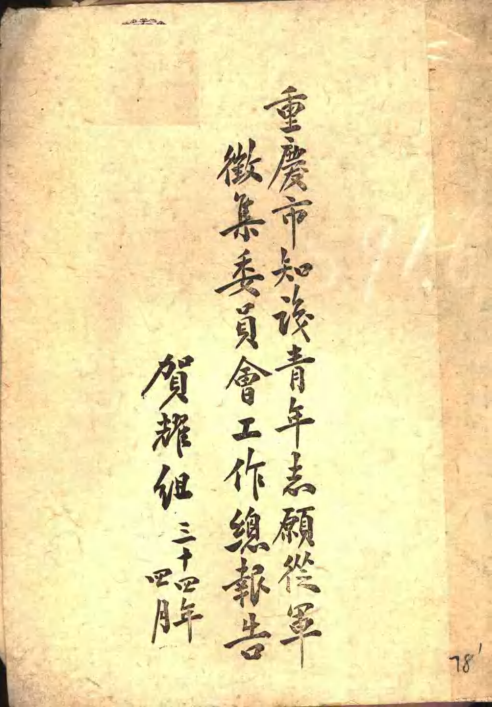 重慶市知識青年志願從軍
徵集委員會工作總報告
賀耀組 三十四年
四月
78